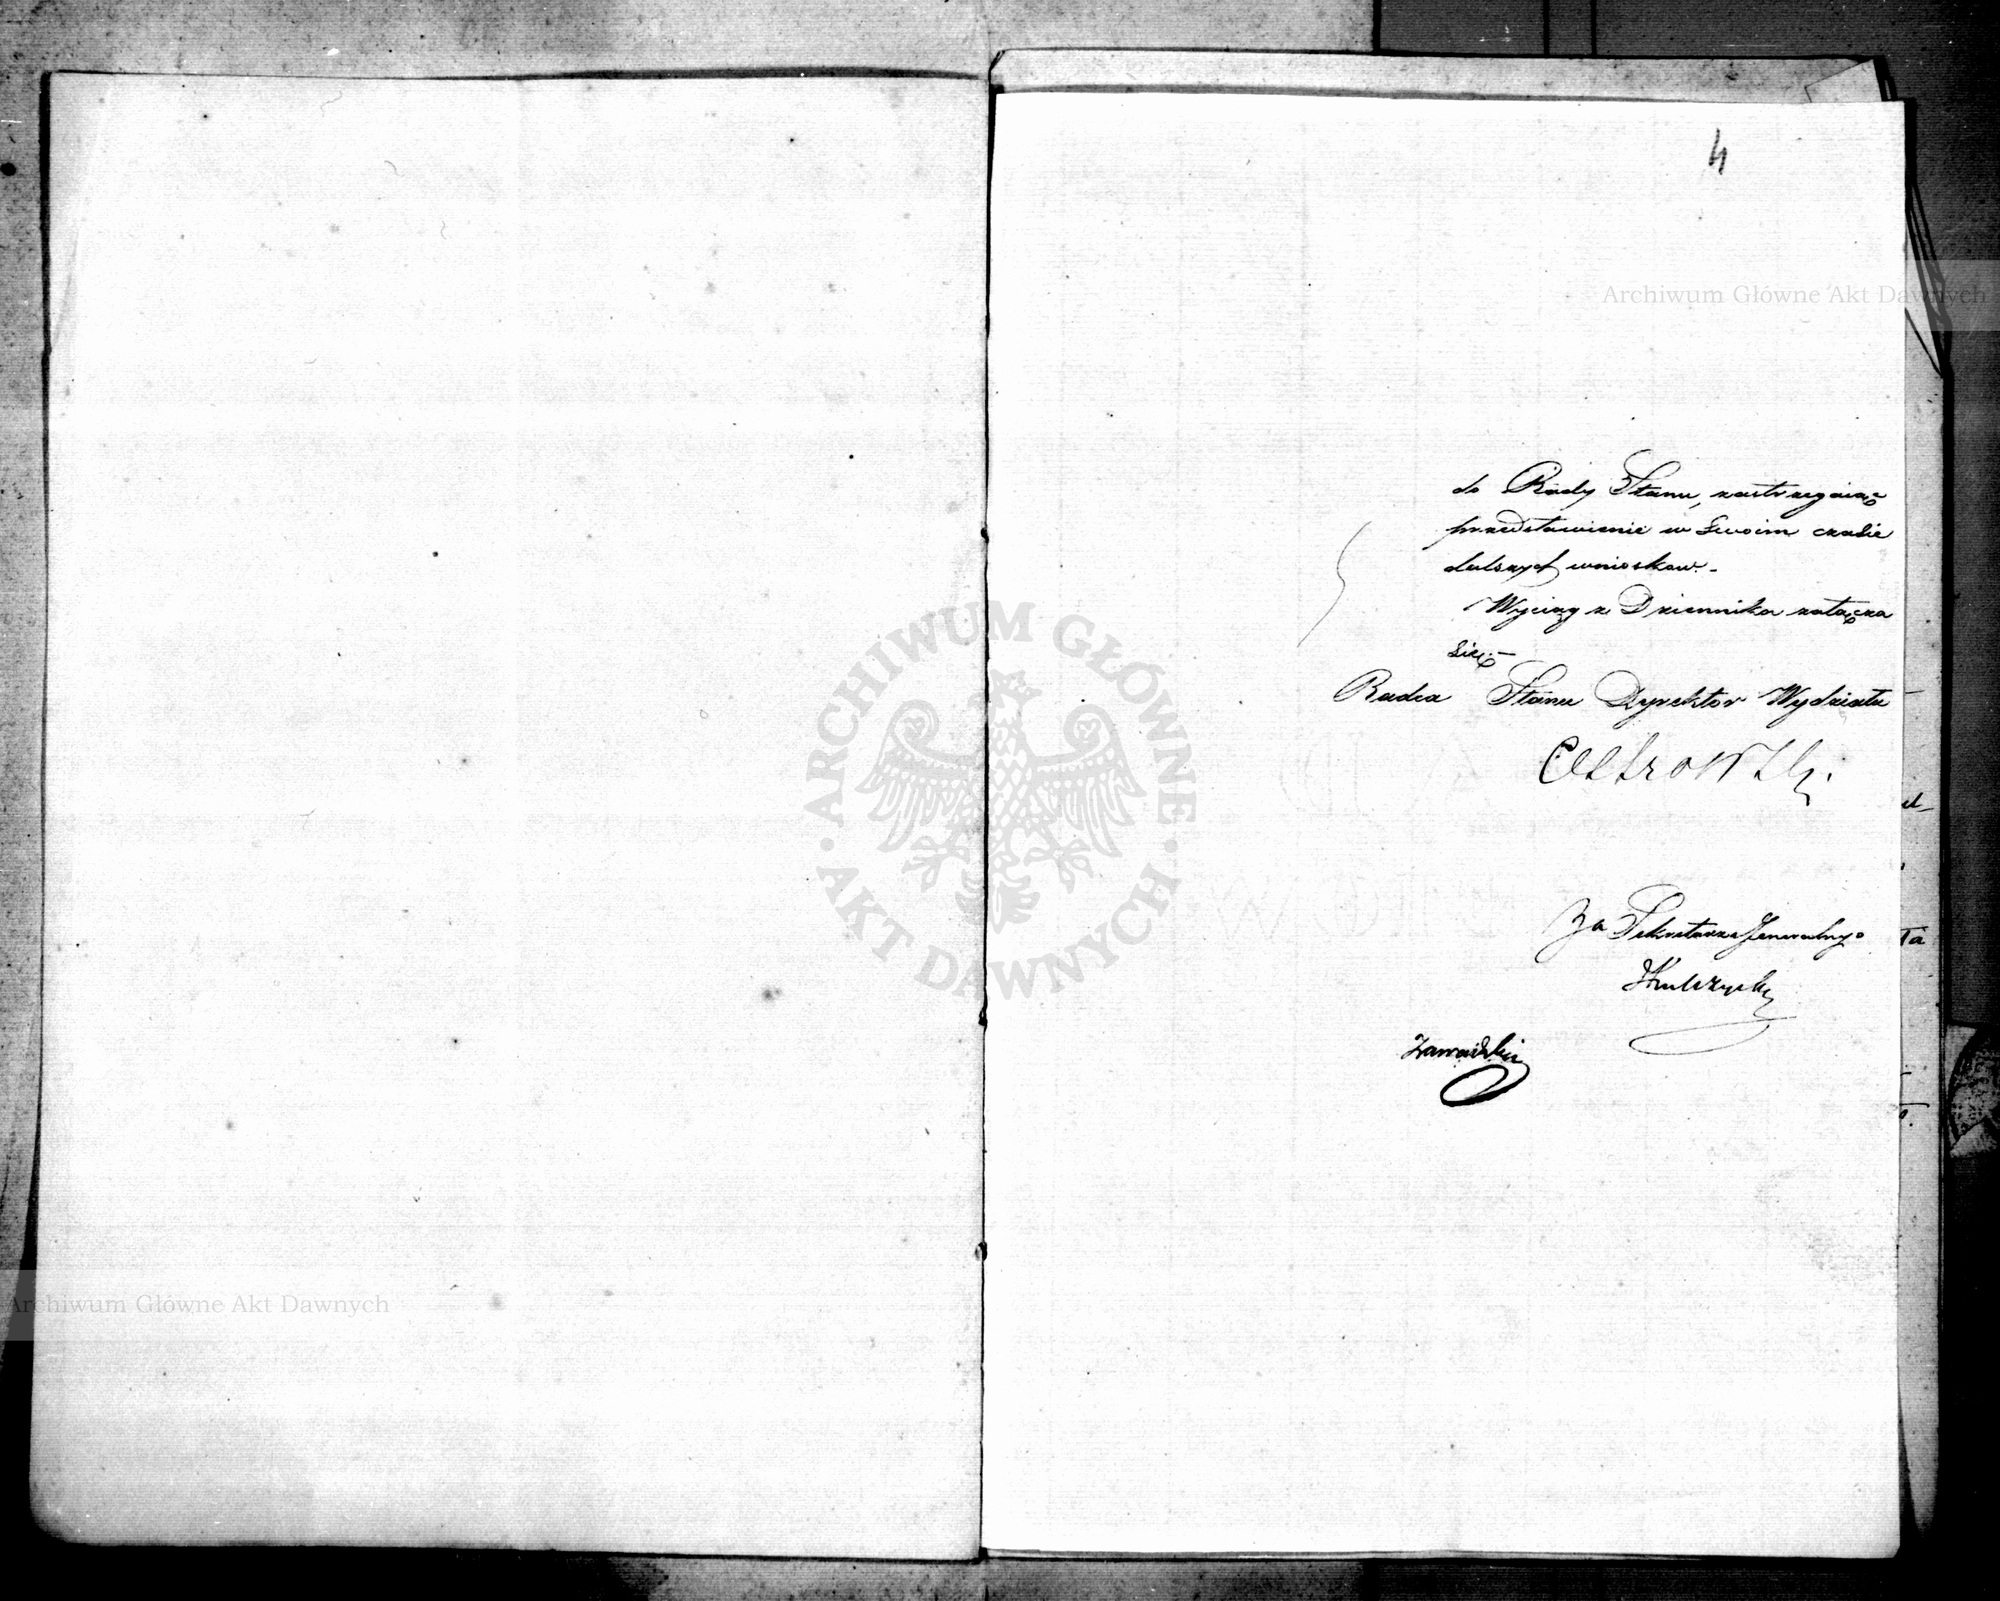 4
Archiwum Główne Akt Dawnych
do Rady Stanu, zastrzegaiąc
przedstawienie w Swoim czasie
dalszych wniosków. -
Wyciąg z Dziennika załącza
Się. -
Radca Stanu Dyrektor Wydziału
Ostrowski.
Za Sekretarza Jeneralnego
Kulczycki
Zawadzki
ARCHIWUM GŁÓWNE
· AKT DAWNYCH ·
Archiwum Główne Akt Dawnych